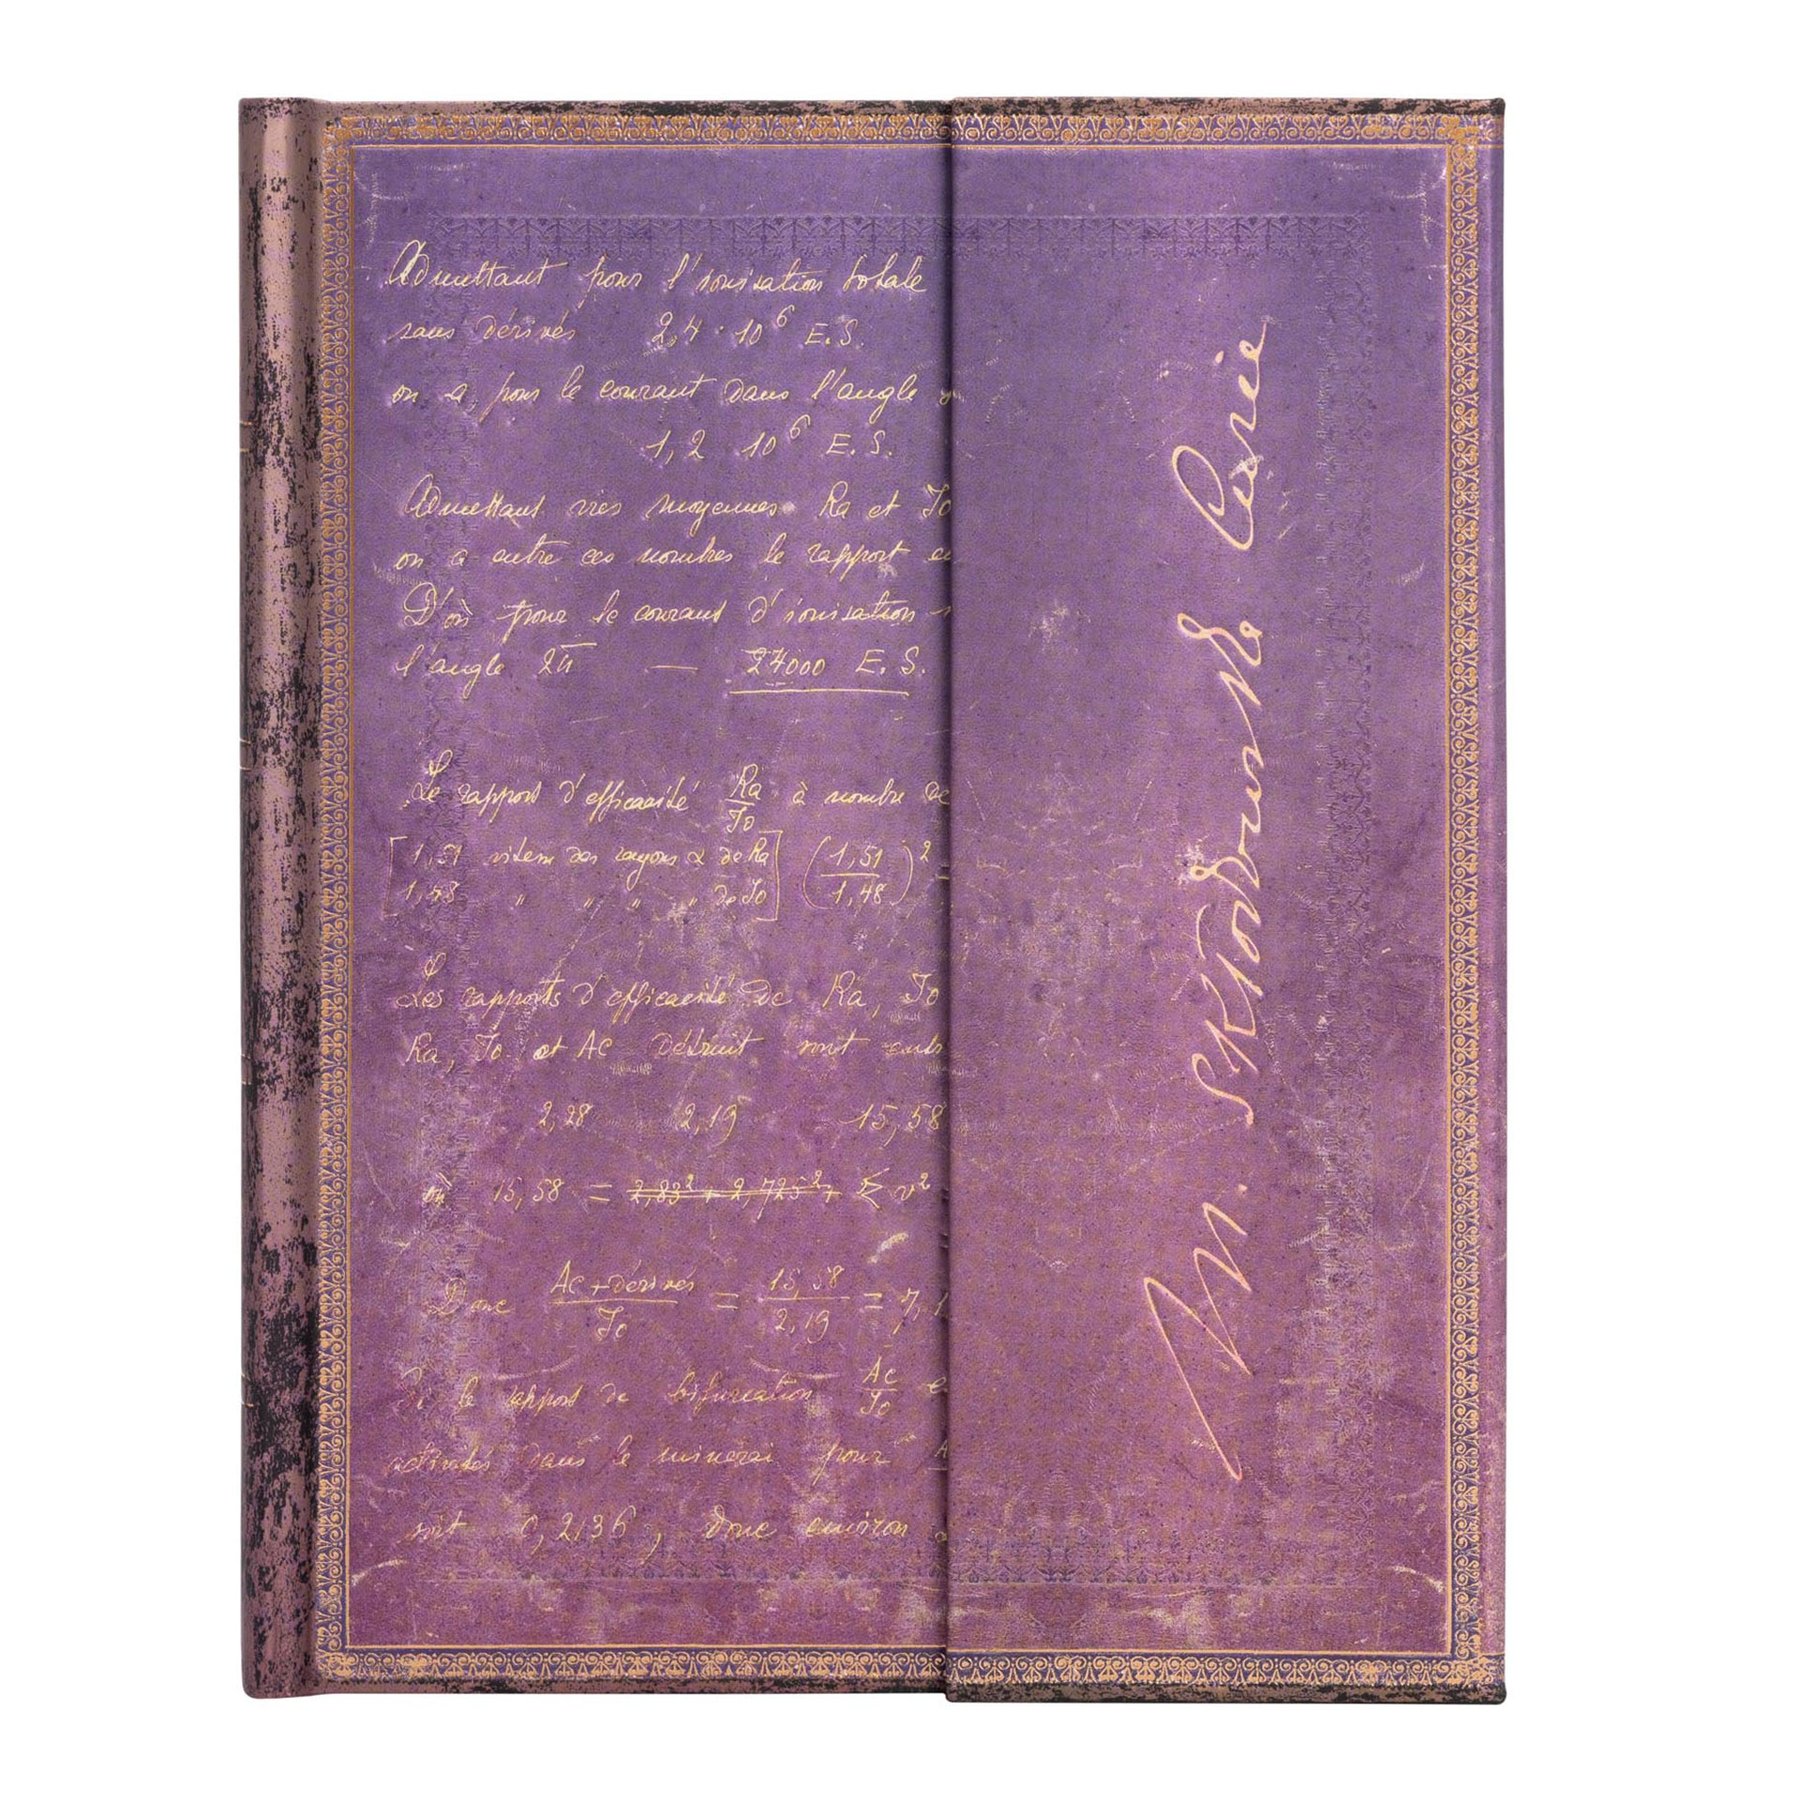 Admettant pour l'ionisation totale
sans dérivés 2,4 · 10⁶ E.S.
on a pour le courant dans l'angle
1,2 · 10⁶ E.S.
Admettant vies moyennes Ra et Io
on a entre ces nombres le rapport
D'où pour le courant d'ionisation
l'angle 2π — 27000 E.S.
Le rapport d'efficacité Ra/Io à nombre de
[1,51 vitesse des rayons α de Ra] (1,51/1,48)²
[1,48 " " " " de Io]
Les rapports d'efficacité de Ra, Io
Ra, Io et AC détruit sont
2,28 2,19 15,58
où 15,58 = 2,83² + 2,725² + Σ v²
Donc Ac + dérivés/Io = 15,58/2,19 = 7,1
Si le rapport de bifurcation Ac/Io
activités dans le minerai pour
soit 0,2136, donc environ
M. Skłodowska Curie